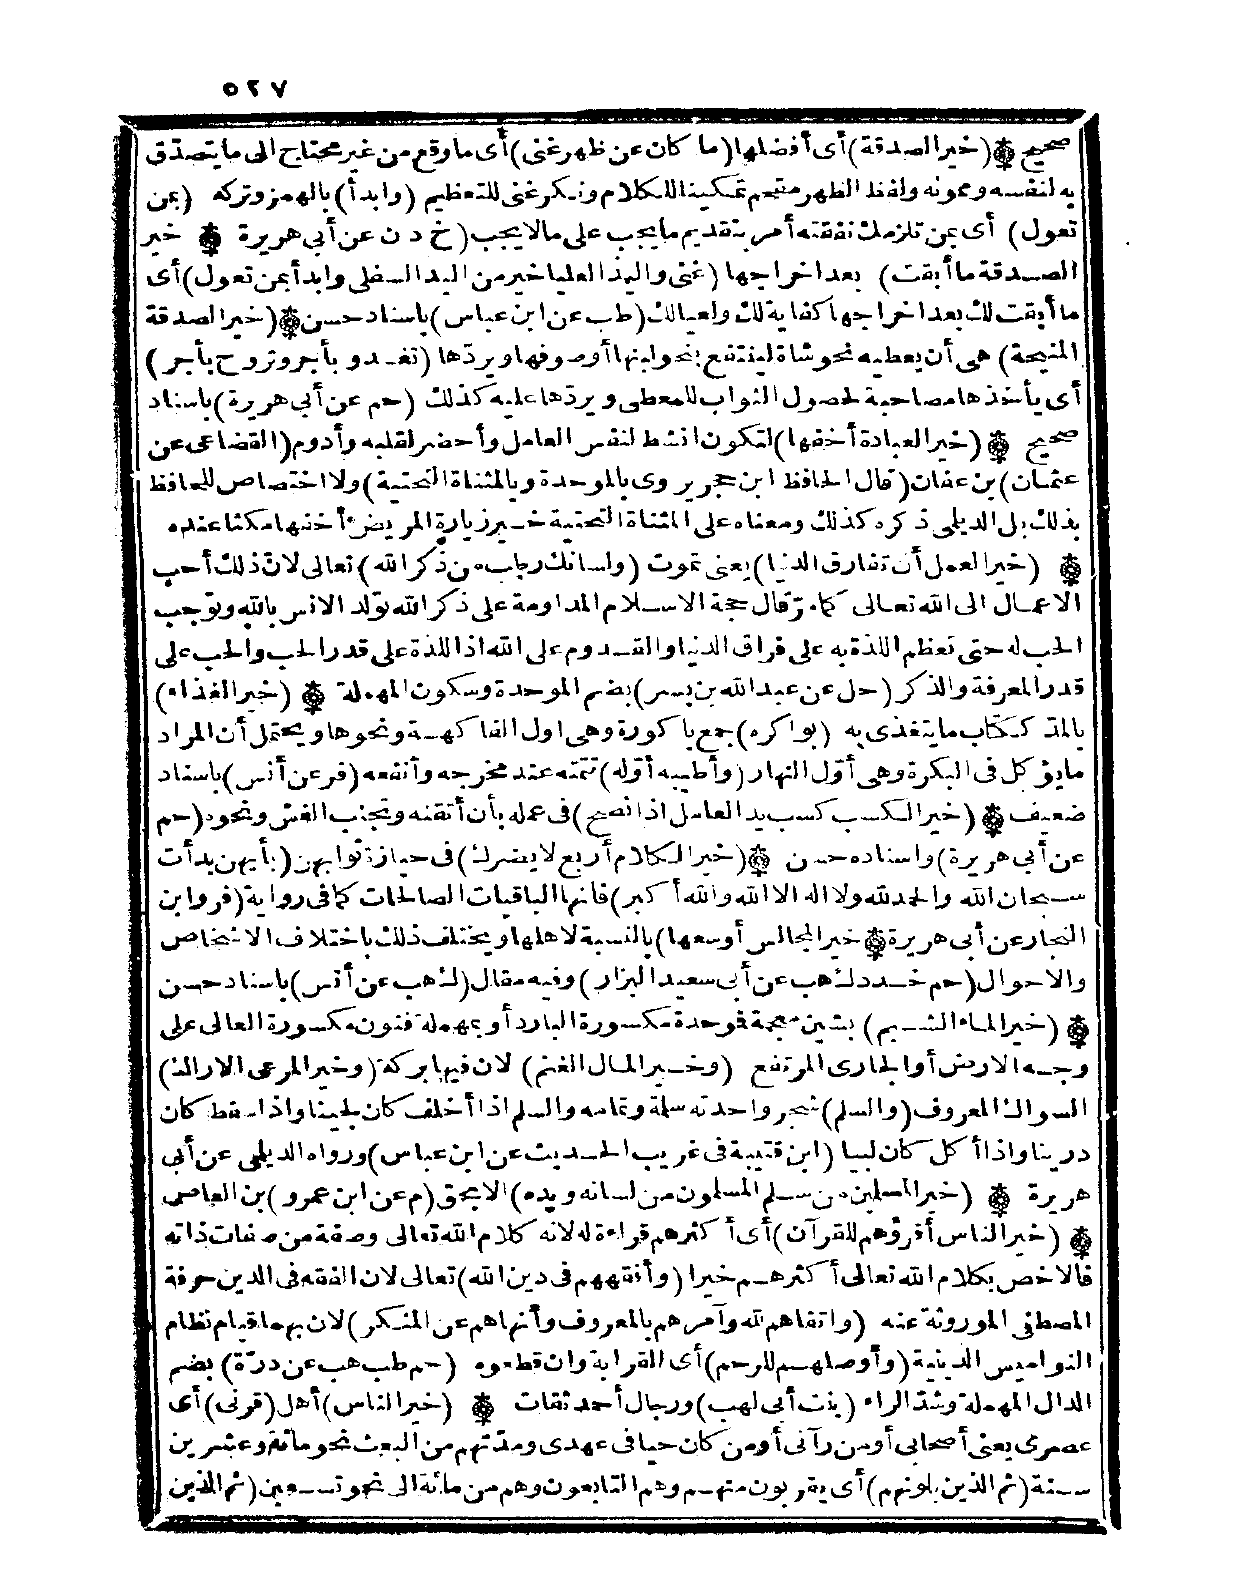 ٥٢٧
صحيح ۞ (خير الصدقة) أى أفضلها (ما كان عن ظهر غنى) أى ما وقع من غير محتاج الى ما يتصدق
به لنفسه وممونه ولفظ الظهر مقحم تمكينا للكلام ونكر غنى للتعظيم (وابدأ) بالهمز وتركه (بمن
تعول) أى بمن تلزمك نفقته أمر بتقديم ما يجب على ما لا يجب (خ د ن عن أبى هريرة ۞ خير
الصدقة ما أبقت) بعد اخراجها (غنى واليد العليا خير من اليد السفلى وابدأ بمن تعول) أى
ما أبقت لك بعد اخراجها كفاية لك ولعيالك (طب عن ابن عباس) باسناد حسن ۞ (خير الصدقة
المنيحة) هى أن يعطيه نحو شاة لينتفع بنحو لبنها أو صوفها ويردّها (تغدو بأجر وتروح بأجر)
أى يأخذها مصاحبة لحصول الثواب للمعطى ويردّها عليه كذلك (حم عن أبى هريرة) باسناد
صحيح ۞ (خير العبادة أخفها) لتكون انشط لنفس العامل وأحضر لقلبه وأدوم (القضاعى عن
عثمان) بن عفان (قال الحافظ ابن حجر يروى بالموحدة وبالمثناة التحتية) ولا اختصاص للحافظ
بذلك بل الديلمى ذكره كذلك ومعناه على المثناة التحتية خير زيارة المريض أخفها مكثا عنده
۞ (خير العمل أن تفارق الدنيا) يعنى تموت (ولسانك رطب من ذكر الله) تعالى لان ذلك أحب
الاعمال الى الله تعالى كما مرّ قال حجة الاسلام المداومة على ذكر الله تولد الانس بالله وتوجب
الحب له حتى تعظم اللذة به على فراق الدنيا والقدوم على الله اذ اللذة على قدر الحب والحب على
قدر المعرفة والذكر (حل عن عبد الله بن بسر) بضم الموحدة وسكون المهملة ۞ (خير الغذاء)
بالمدّ ككتاب ما يتغذى به (بواكره) جمع باكورة وهى اول الفاكهة ونحوها ويحتمل أن المراد
ما يؤكل فى البكرة وهى أوّل النهار (وأطيبه أوّله) تتمته عند مخرجه وأنفعه (فر عن أنس) باسناد
ضعيف ۞ (خير الكسب كسب يد العامل اذا نصح) فى عمله بأن أتقنه وتجنب الغش ونحوه (حم
عن أبى هريرة) واسناده حسن ۞ (خير الكلام أربع لا يضرك) فى حيازة ثوابهن (بأيهن بدأت
سبحان الله والحمد لله ولا اله الا الله والله أكبر) فانها الباقيات الصالحات كما فى رواية (فر وابن
النجار عن أبى هريرة ۞ خير المجالس أوسعها) بالنسبة لاهلها ويختلف ذلك باختلاف الاشخاص
والاحوال (حم خد د ك هب عن أبى سعيد البزار) وفيه مقال (ك هب عن أنس) باسناد حسن
۞ (خير الماء الشبم) بشين معجمة فموحدة مكسورة البارد أو بمهملة فنون مكسورة العالى على
وجه الارض أو الجارى المرتفع (وخير المال الغنم) لان فيها بركة (وخير المرعى الاراك)
السواك المعروف (والسلم) شجر واحدته سلمة وتمامه والسلم اذا أخلف كان لجينا واذا سقط كان
درينا واذا أكل كان لبينا (ابن قتيبة فى غريب الحديث عن ابن عباس) ورواه الديلمى عن أبى
هريرة ۞ (خير المسلمين من سلم المسلمون من لسانه ويده) الا بحق (م عن ابن عمرو) بن العاصى
۞ (خير الناس أقرؤهم للقرآن) أى أكثرهم قراءة له لانه كلام الله تعالى وصفة من صفات ذاته
فالاخص بكلام الله تعالى أكثرهم خيرا (وأفقههم فى دين الله) تعالى لان الفقه فى الدين حرفة
المصطفى الموروثة عنه (واتقاهم لله وآمرهم بالمعروف وأنهاهم عن المنكر) لان بهما قيام نظام
النواميس الدينية (وأوصلهم للرحم) أى القرابة وان قطعوه (حم طب هب عن درّة) بضم
الدال المهملة وشدّ الراء (بنت أبى لهب) ورجال أحمد ثقات ۞ (خير الناس) أهل (قرنى) أى
عصرى يعنى أصحابى أو من رآنى أو من كان حيا فى عهدى ومدّتهم من البعث نحو مائة وعشرين
سنة (ثم الذين يلونهم) أى يقربون منهم وهم التابعون وهم من مائة الى نحو تسعين (ثم الذين